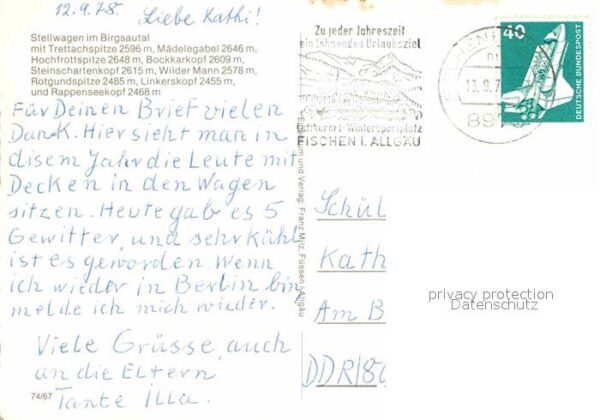 12.9.78. Liebe Kathi!
Stellwagen im Birgsautal
mit Trettachspitze 2596 m, Mädelegabel 2646 m,
Hochfrottspitze 2648 m, Bockkarkopf 2609 m,
Steinschartenkopf 2615 m, Wilder Mann 2578 m,
Rotgundspitze 2485 m, Linkerskopf 2455 m,
und Rappenseekopf 2468 m
Für Deinen Brief vielen
Dank. Hier sieht man in
disem Jahr die Leute mit
Decken in den Wagen
sitzen. Heute gab es 5
Gewitter, und sehr kühl
ist es geworden. Wenn
ich wieder in Berlin bin,
melde ich mich wieder.
Viele Grüsse, auch
an die Eltern
Tante Illa.
74/67
und Verlag Franz Milz, Füssen/Allgäu
Zu jeder Jahreszeit
ein lohnendes Urlaubsziel
Luftkurort-Wintersportplatz
FISCHEN i. ALLGÄU
13.9.7
897
40
DEUTSCHE BUNDESPOST
Schül
Kath
Am B
DDR 180
privacy protection
Datenschutz